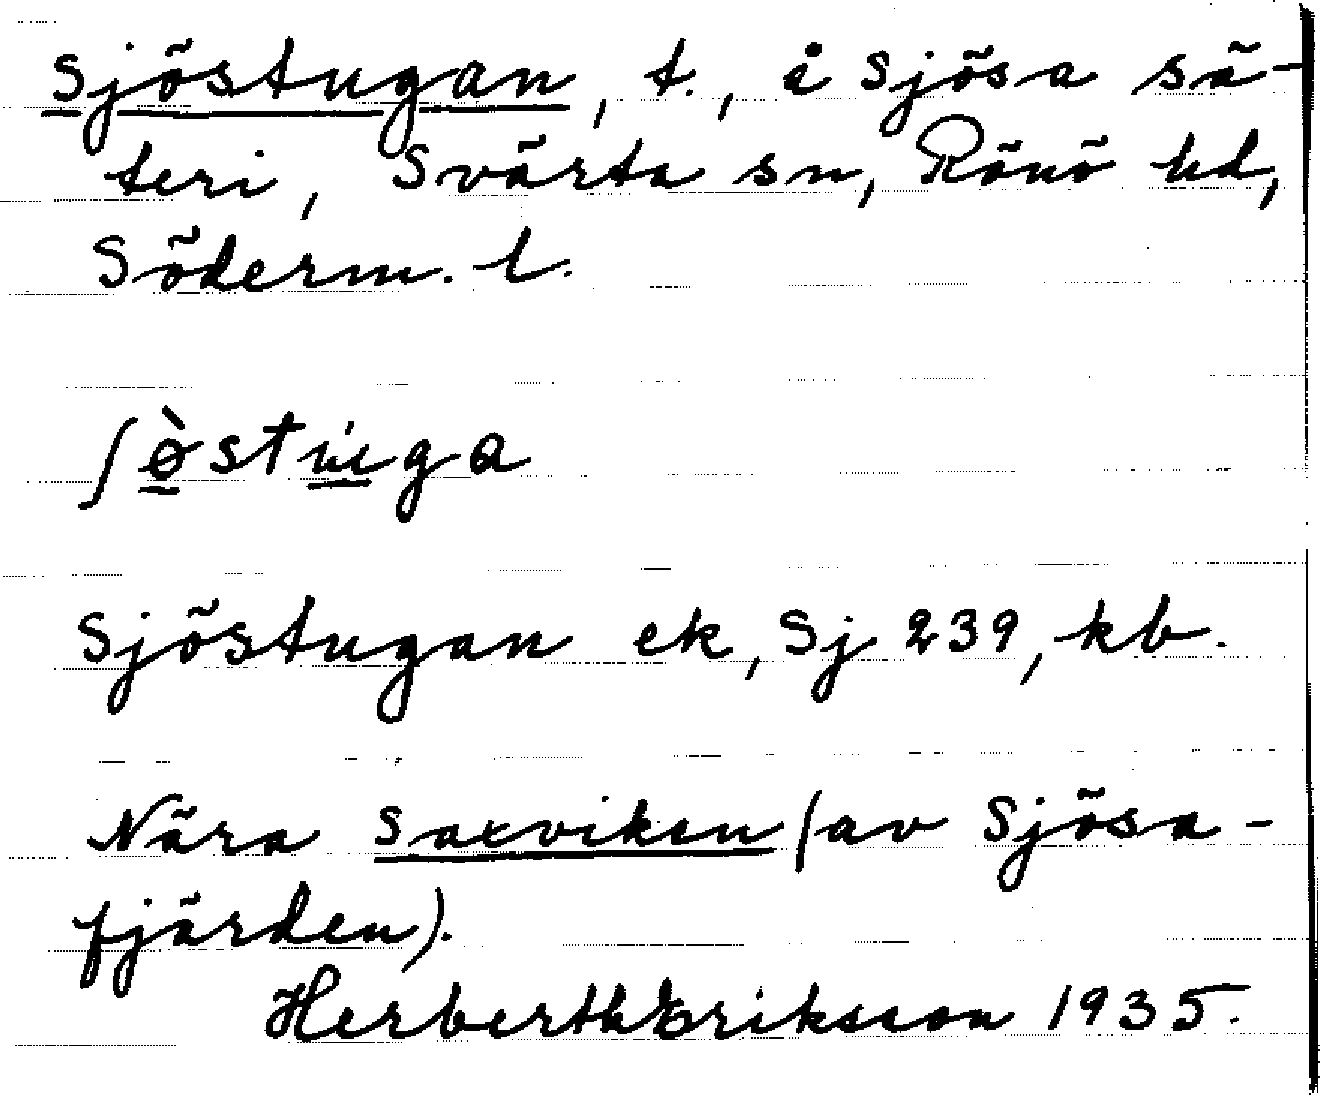 Sjöstugan, t., i Sjösa sä-
teri, Svärta sn, Rönö hd,
Söderm. l.
ʃø̀stúga
Sjöstugan ek, Sj 239, kb.
Nära Saxviken (av Sjösa-
fjärden).
Herbert Eriksson 1935.